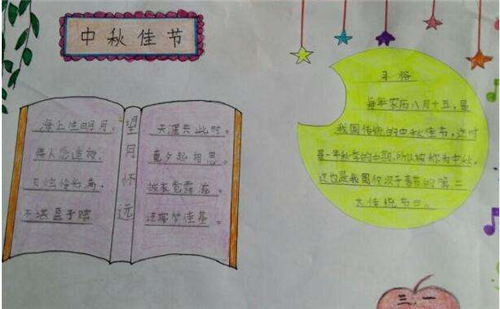 中秋佳节
望月怀远
海上生明月，
情人怨遥夜，
灭烛怜光满，
不堪盈手赠
天涯共此时。
竟夕起相思。
披衣觉露滋。
还寝梦佳期。
习俗
每年农历八月十五，是
我国传统的中秋佳节，这时
是一年秋季的中期，所以被称为中秋。
这也是我国仅次于春节的第二
大传统节日。
三.一